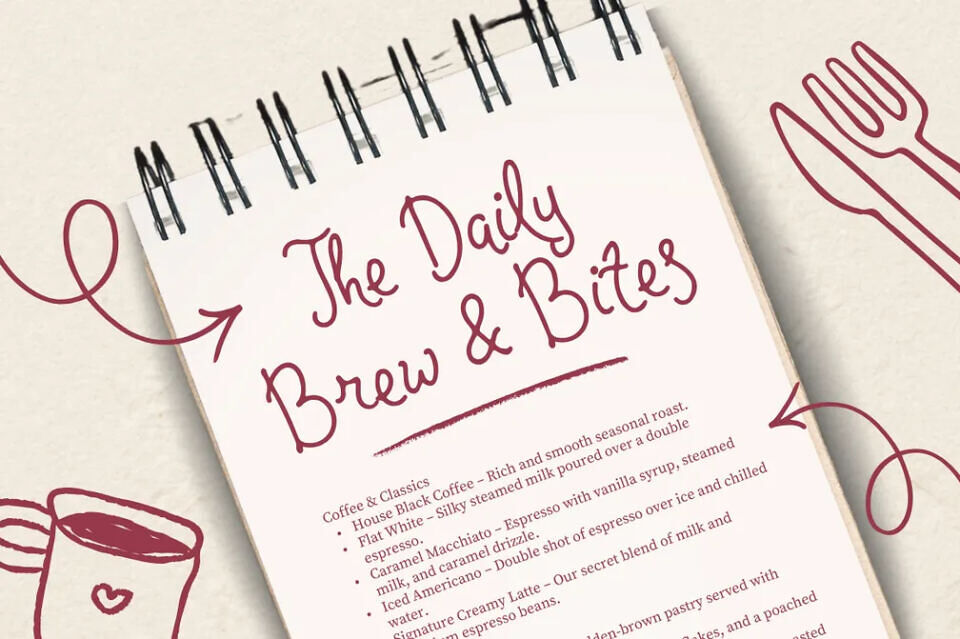 The Daily
Brew & Bites
Coffee & Classics
• House Black Coffee – Rich and smooth seasonal roast.
• Flat White – Silky steamed milk poured over a double
espresso.
• Caramel Macchiato – Espresso with vanilla syrup, steamed
milk, and caramel drizzle.
• Iced Americano – Double shot of espresso over ice and chilled
water.
Signature Creamy Latte – Our secret blend of milk and
espresso beans.
-brown pastry served with
and a poached